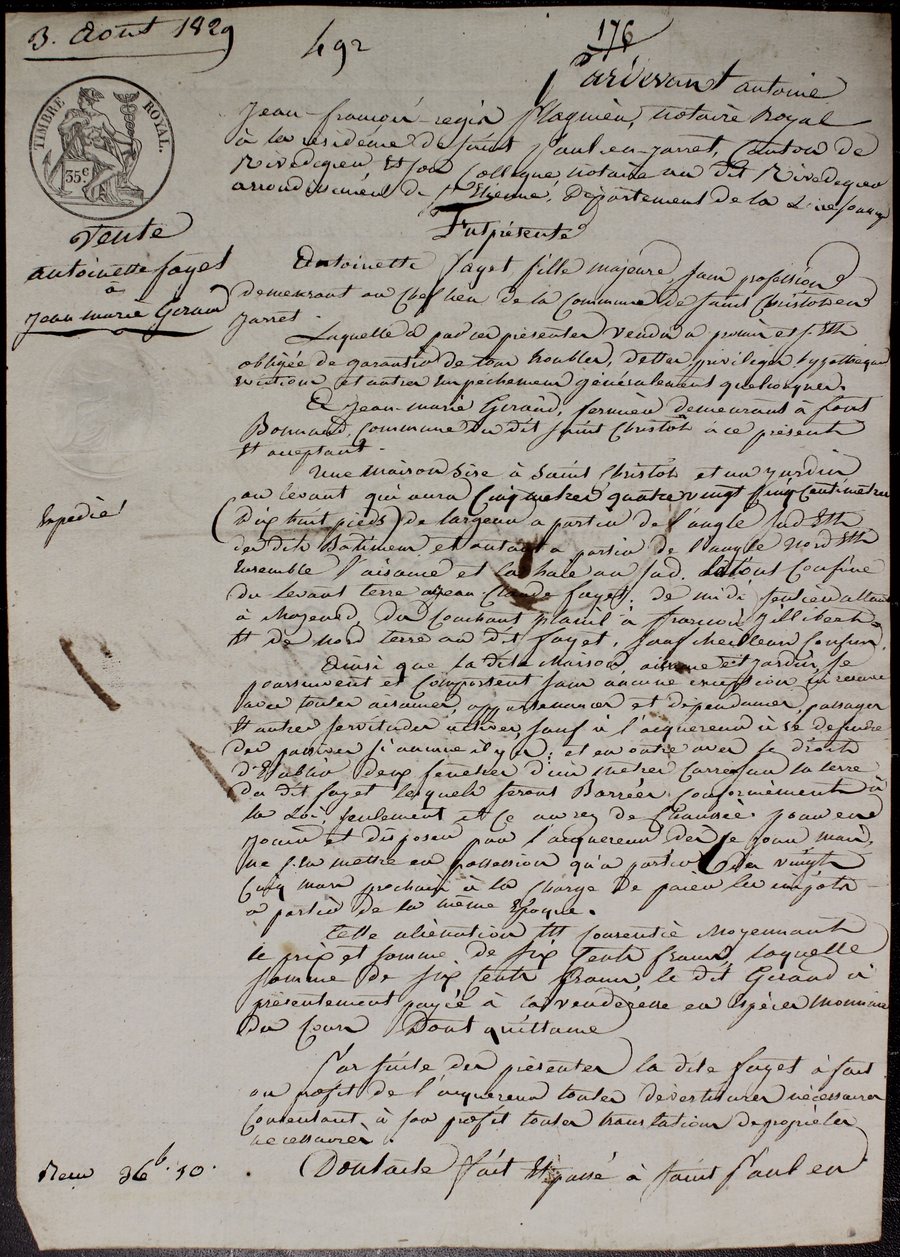 3. Aout 1829
492
176
Pardevant antoine
TIMBRE ROYAL.
35c
Jean-françois-regis flaguien, notaire Royal
à la résidence de Saint Paul-en-jarret, Canton de
Rivedegier et son Collegue notaire au dit Rivedegier
arrondissement de St Etienne, Departement de la Loire soussignés
Vente
antoinette fayet
à
Jean marie Girard
Fut présente
Antoinette fayet fille majeure, sans profession
demeurant au Chef lieu de la Commune de Saint Christo en
Jarret
Laquelle a par ces présentes vendu a promis et s'est
obligée de garantir de tous troubles, dettes, privileges, hypothèques
evictions, et autres empechements généralement quelconques.
A Jean-marie Girard, fermier demeurant à font
Bonnard, Commune du dit Saint Christoh à ce présent
et acceptant
Une maison sise à Saint Christoh et un jardin
au levant qui aura Cinq metres quatre vingt cinq Centimetres
Expedié
(Dix huit pieds) de largeur a partir de l'angle sud Est
des dits Batiment et autant a partir de l'angle nord Est
Ensemble l'aisance et la haie au sud. Le tout Confiné
du Levant terre a Jean Claude fayet; de midi sentier allant
à du Couchant à françois
Et de nord terre au dit fayet, sauf meilleurs Confins.
Ainsi que la dite Maison aisance et jardin, se
poursuivent et Comportent sans aucune exception ni reserve
avec toutes aisances, appartenances et dependances, passages
Et autres servitudes actives sauf à l'acquereur à se defendre
des passives s'aucune il y a; et en outre avec le droit
d'Etablir deux fenetres d'un metres Carré sur la terre
du dit fayet lesquels seront Barrées Conformément à
la Loi, seulement et ce au rez de Chaussée pour en
jouir et disposer par l'acquereur des ce jour mais,
ne s'en mettre en possession qu'a partir du vingt
Cinq mars prochain à la Charge de paier les impots
a partir de la même Epoque.
Cette aliénation Est Consentie moyennant
le prix et somme de six Cents francs, laquelle
somme de six Cents francs le dit Girard a
présentement payée à la venderesse en espèces monnaie
du Cours Dont quittance
Par suite des présentes la dite fayet à fait
au profit de l'acquereur toutes devestitures nécessaires
Consentant à son profit toutes translations de propriétés
necessaires.
Reçu 36f. 30.
Dont acte fait Et passé à Saint Paul en